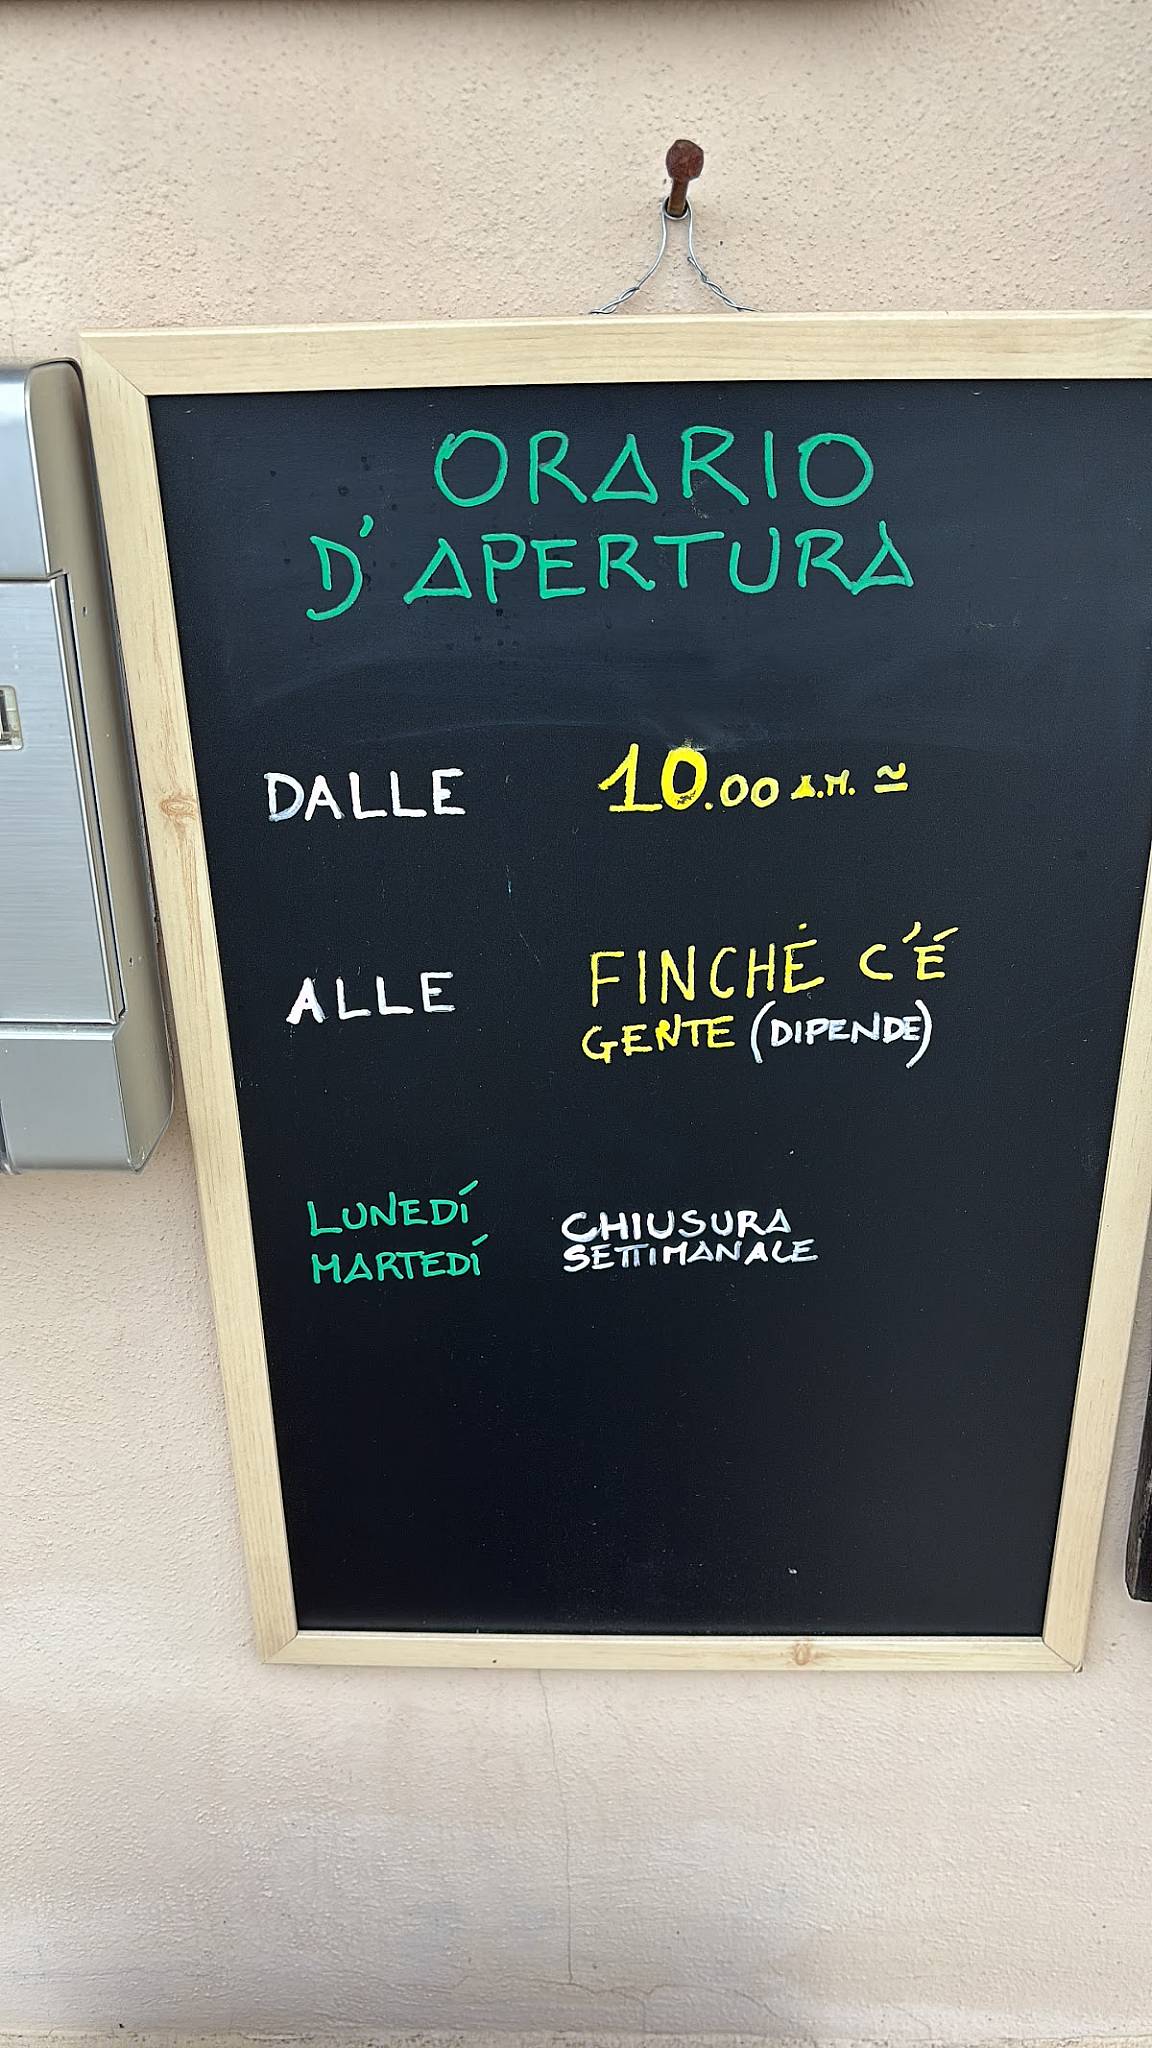 ORARIO
D'APERTURA
DALLE 10.00 A.M. ≃
ALLE FINCHÉ C'É
GENTE (DIPENDE)
LUNEDÍ CHIUSURA
MARTEDÍ SETTIMANALE